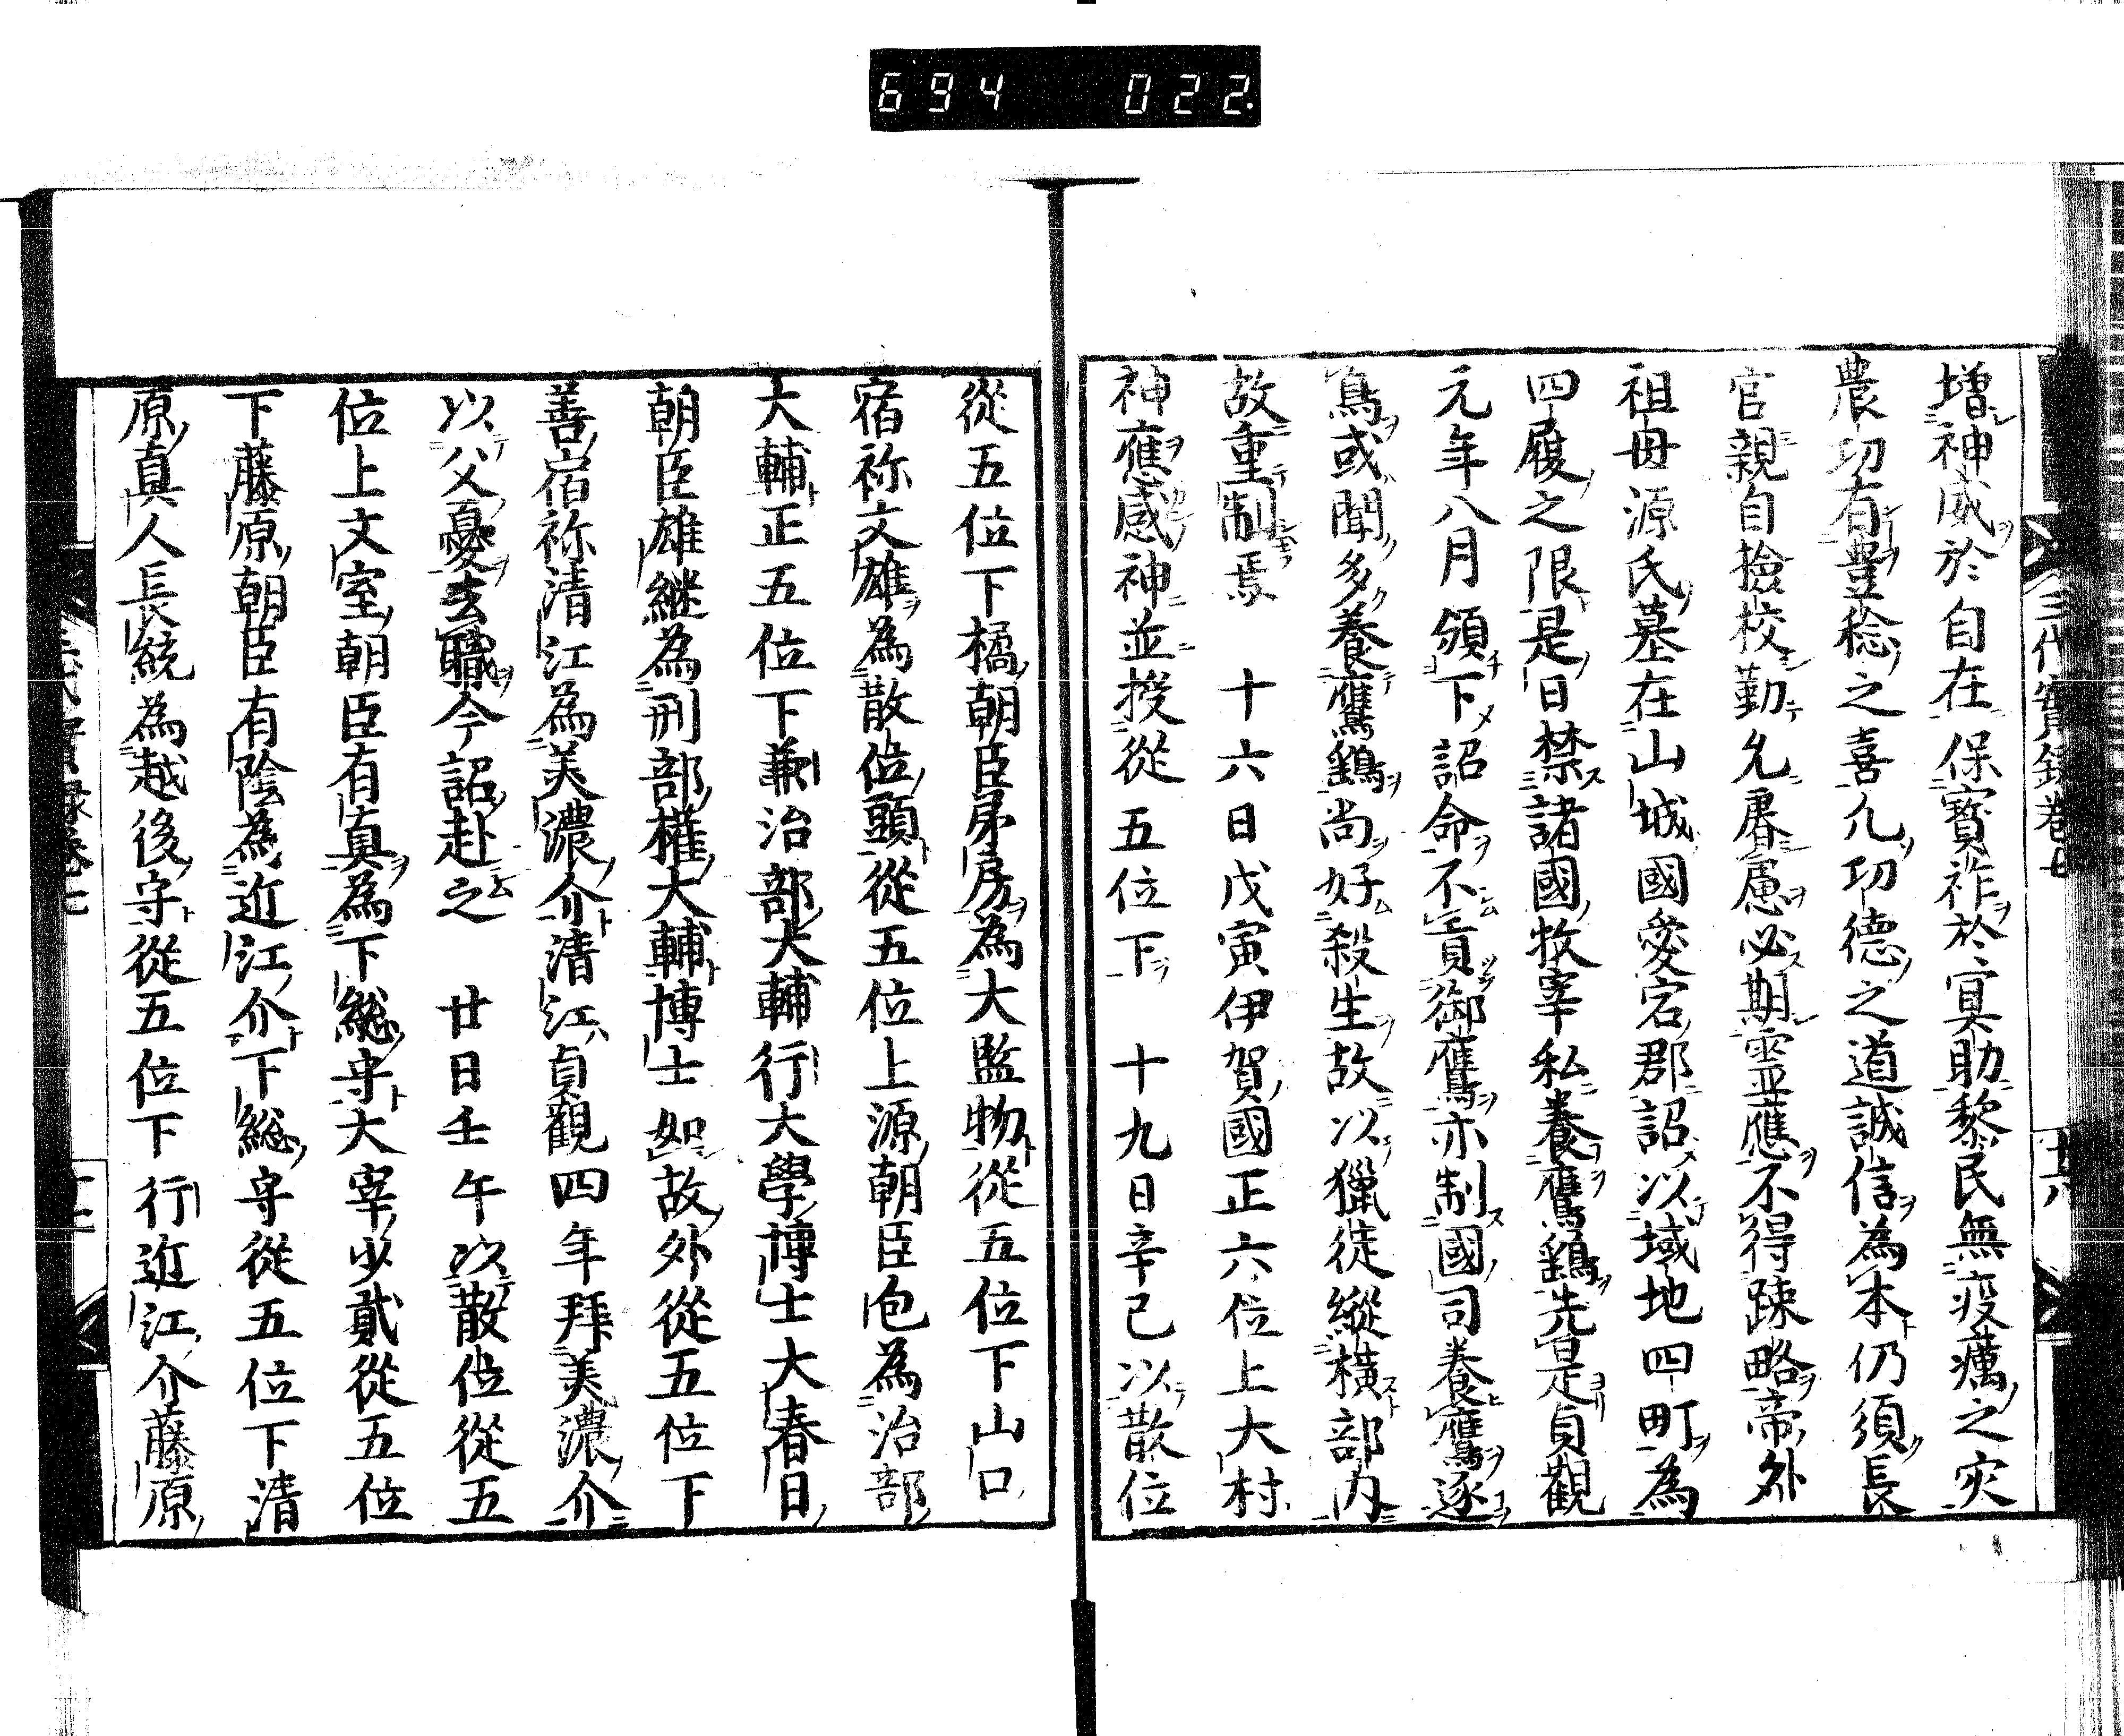 694 022.
三代實錄卷七
十八
増神威於自在保寳祚於冥助黎民無疫癘之灾
農功有豊稔之喜凢功德之道誠信為本仍須長
官親自撿挍勤允眷慮必期靈應不得踈略帝外
祖母源氏墓在山城國愛宕郡詔以域地四町為
四履之限是日禁諸國牧宰私養鷹鷂先是貞觀
元年八月頒下詔命不貢御鷹亦制國司養鷹逐
鳥或聞多養鷹鷂尚好殺生故以獵徒縱横部内
故重制焉　十六日戊寅伊賀國正六位上大村
神應感神並授從五位下　十九日辛巳以散位
從五位下橘朝臣弟房為大監物從五位下山口
宿祢文雄為散位頭從五位上源朝臣包為治部
大輔正五位下兼治部大輔行大學博士大春日
朝臣雄継為刑部權大輔博士如故外從五位下
善宿祢清江為美濃介清江貞觀四年拜美濃介
以父憂去職今詔赴之　廿日壬午以散位從五
位上文室朝臣有真為下総守大宰少貳從五位
下藤原朝臣有陰為近江介下総守從五位下清
原真人長統為越後守從五位下行近江介藤原